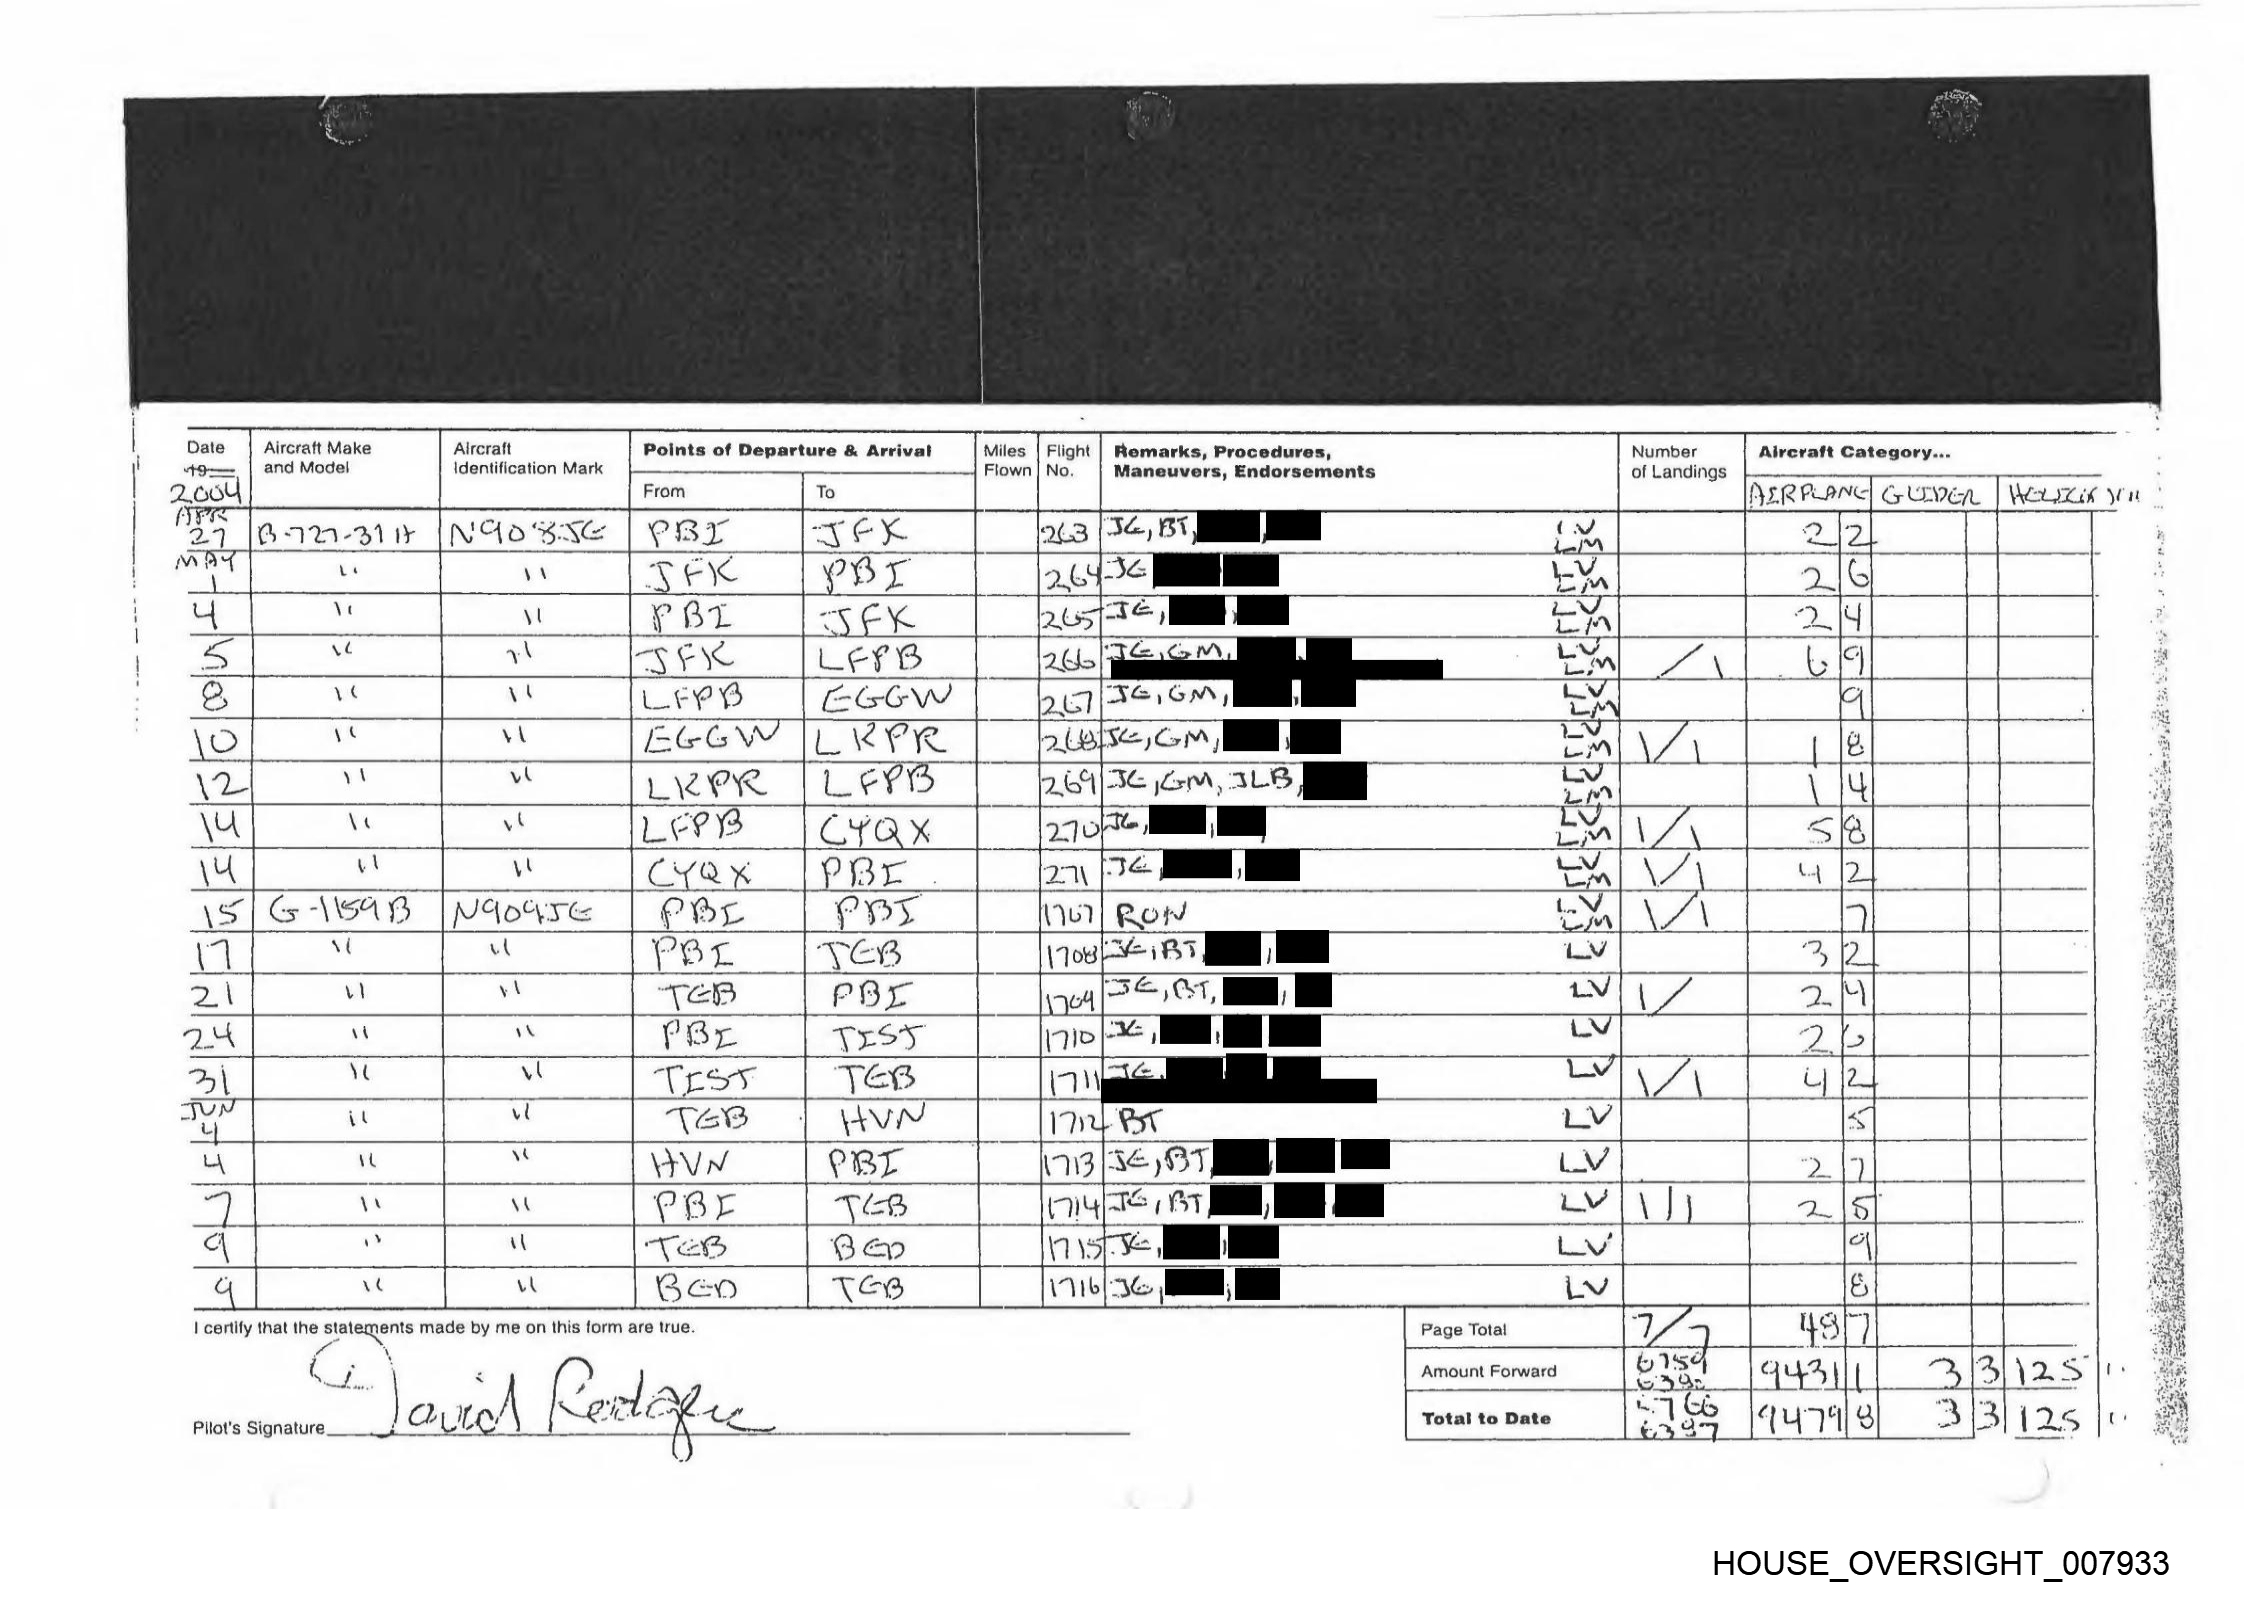 Date Aircraft Make and Model Aircraft Identification Mark Points of Departure & Arrival Miles Flown Flight No. Remarks, Procedures, Maneuvers, Endorsements Number of Landings Aircraft Category...
19
2004 From To AIRPLANE GLIDER
APR 27 B-727-31H N908JE PBI JFK 263 JE, BT, LV LM 2 2
MAY 1 " " JFK PBI 264 JE LV LM 2 6
4 " " PBI JFK 265 JE, , LV LM 2 4
5 " " JFK LFPB 266 JE, GM, , LV LM /1 6 9
8 " " LFPB EGGW 267 JE, GM, , LV LM 9
10 " " EGGW LKPR 268 JE, GM, , LV LM 1/1 1 8
12 " " LKPR LFPB 269 JE, GM, JLB, LV LM 1 4
14 " " LFPB CYQX 270 JE, , LV LM 1/1 5 8
14 " " CYQX PBI 271 JE, , LV LM 1/1 4 2
15 G-1159B N909JE PBI PBI 1707 RON LV LM 1/1 7
17 " " PBI TEB 1708 JE, BT, , LV 3 2
21 " " TEB PBI 1709 JE, BT, , LV 1/ 2 4
24 " " PBI TIST 1710 JE, , LV 2
31 " " TIST TEB 1711 JE, LV 1/1 4 2
JUN 4 " " TEB HVN 1712 BT LV 5
4 " " HVN PBI 1713 JE, BT, , LV 2 7
7 " " PBI TEB 1714 JE, BT, , , LV 1/1 2 5
9 " " TEB BED 1715 JE, , LV 9
9 " " BED TEB 1716 JE, , LV 8
I certify that the statements made by me on this form are true.
Page Total 7/7 48 7
Amount Forward 9431 1 3 3 125
Total to Date 9479 8 3 3 125
Pilot's Signature David Rodgers
HOUSE_OVERSIGHT_007933